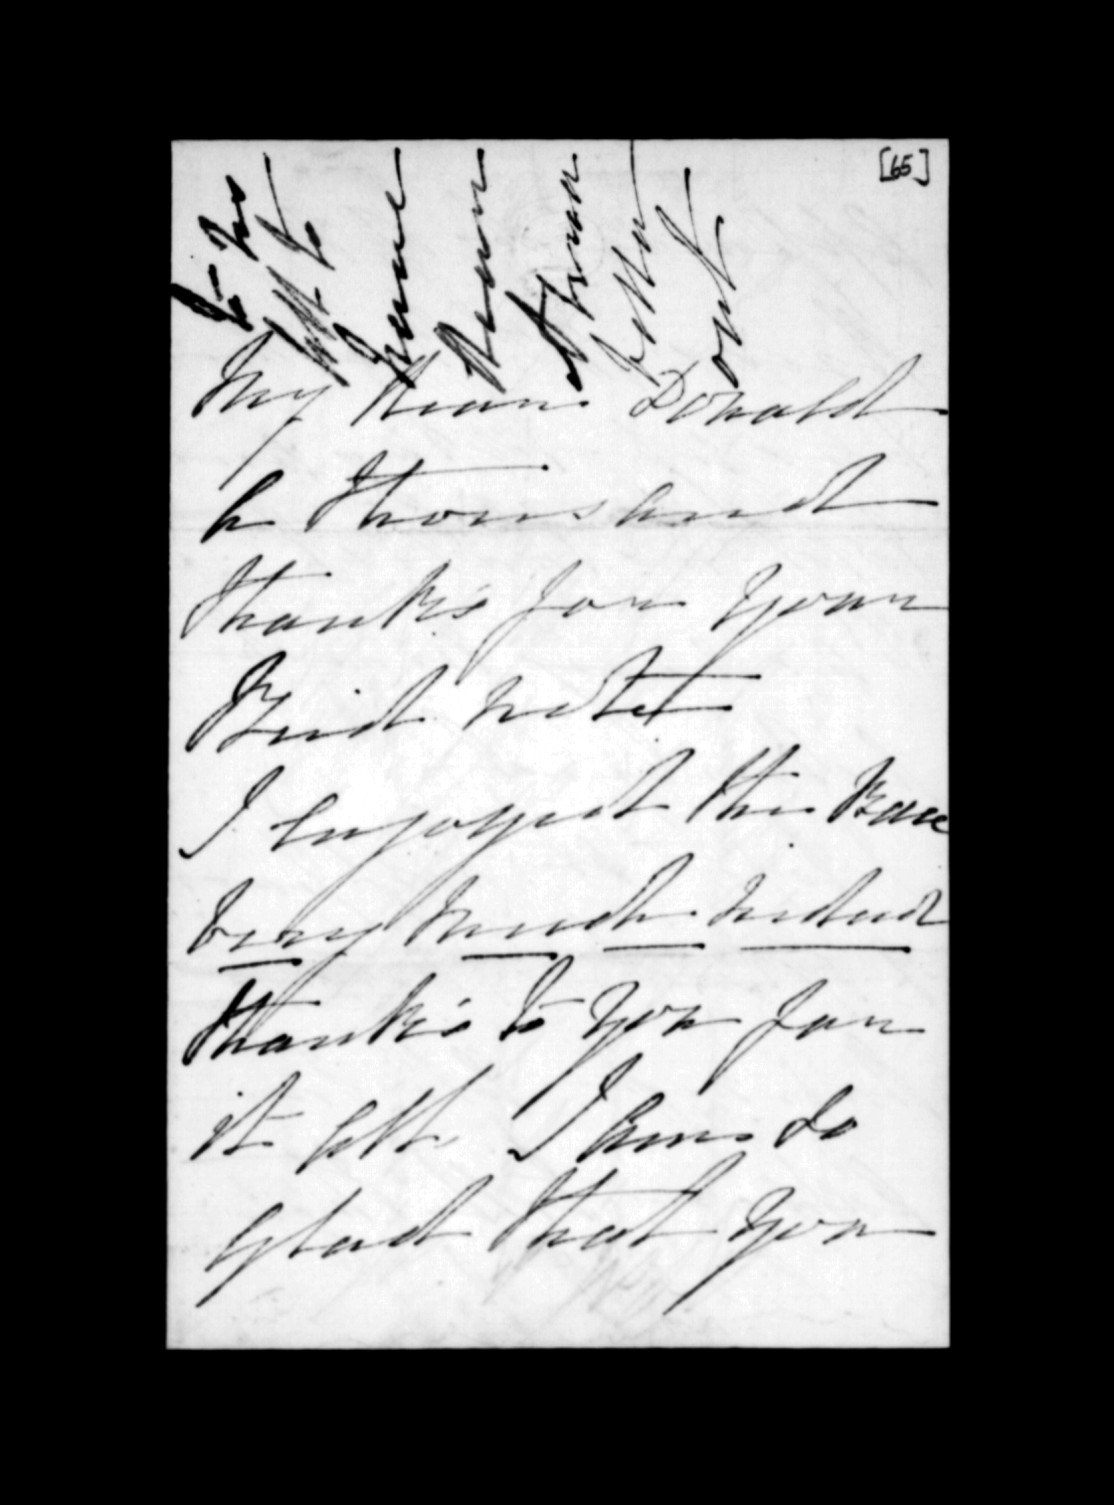 [65]
My dear Donald
A thousand
thanks for your
kind note
I enjoyed the Race
very much indeed
thanks to you for
it all. I am so
glad that you